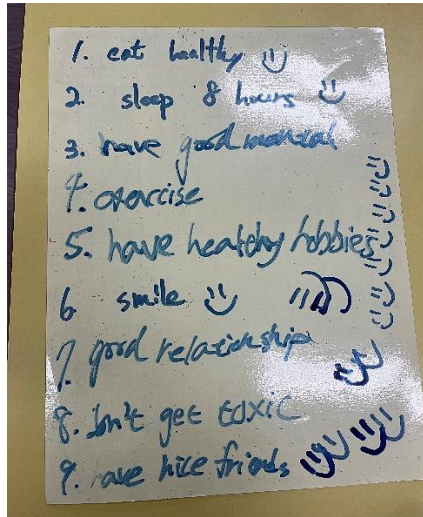 1. eat healthy
2. sleep 8 hours
3. have good mental
4. exercise
5. have healthy hobbies
6 smile
7. good relationship
8. Don't get toxic
9. have nice friends